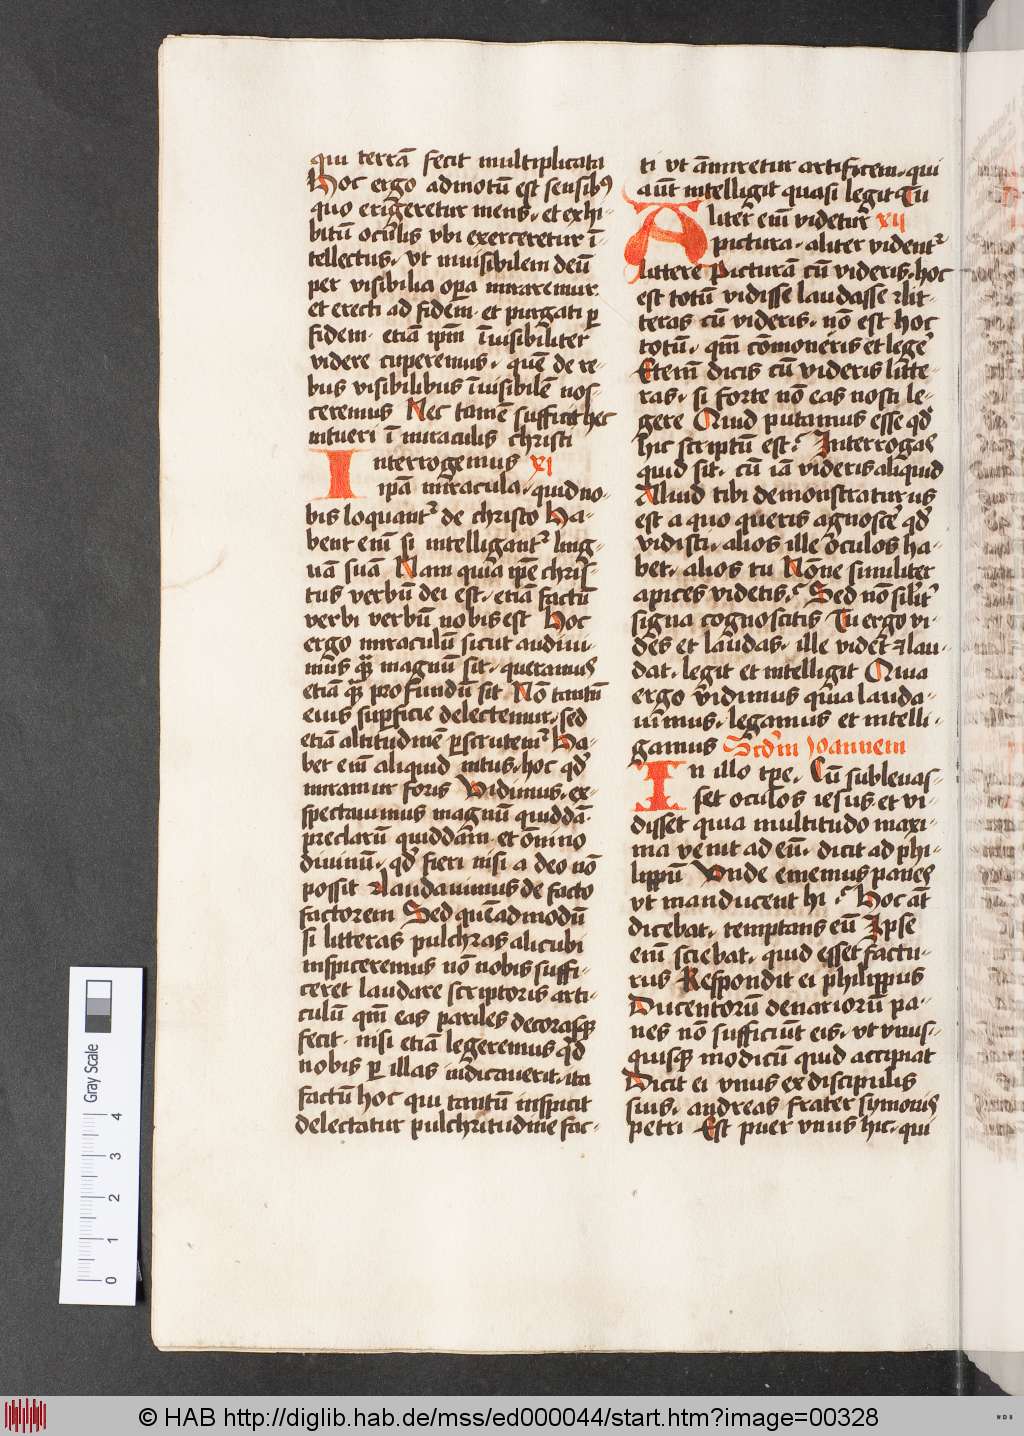 qui terrā fecit multiplicata
Hoc ergo admotū est sensib⁹
quo erigeretur mens, et exhi-
bitū oculis vbi exerceretur ī-
tellectus, vt inuisibilem deū
per visibilia opa miraremur
et erecti ad fidem, et purgati ꝑ
fidem, etiā ipm̄ īuisibiliter
videre cuperemus, quē de re-
bus visibilibus īuisibilē nos-
ceremus Nec tamē sufficit hec
intueri ī miraculis christi
Interrogemus xj
ipā miracula, quid no-
bis loquant᷑ de christo Ha-
bent em̄ si intelligant᷑ ling-
uā suā Nam quia ipe chris-
tus verbū dei est, etiā factū
verbi verbū nobis est Hoc
ergo miraculū sicut audiui-
mus qͣ magnū sit, queramus
etiā qͣ profundū sit Nō tantū
eius suꝑficie delectemur, sed
etiā altitudinē ꝑscrutem᷑ Ha-
bet em̄ aliquid intus, hoc qd̓
miramur foris Vidimus, ex-
spectauimus magnū quiddā
preclarū quiddam, et omīno
diuinū, qd̓ fieri nisi a deo nō
possit ⁊laudauimus de facto
factorem Sed quēadmodū
si litteras pulchras alicubi
inspiceremus nō nobis suffi-
ceret laudare scriptoris arti-
culū qm̄ eas pariles decorasqꝫ
fecit, nisi etiā legeremus qd̓
nobis ꝑ illas iudicauerit, ita
factū hoc qui tantū inspicit
delectatur pulchritudine fac-
ti vt āmiretur artificem, qui
aūt intelligit quasi legit Tu
Aliter em̄ videtur xij
pictura, aliter vident᷑
littere Picturā cū videris, hoc
est totū vidisse laudasse ⁊lit-
teras cū videris, nō est hoc
totū, qm̄ cōmoneris et lege᷑
Etem̄ dicis cū videris litte-
ras, si forte nō eas nosti le-
gere Quid putamus esse qd̓
hic scriptū est? Interrogas
quid sit, cū iā videris aliquid
Aliud tibi demonstraturus
est a quo queris agnosce᷑ qd̓
vidisti, alios ille oculos ha-
bet, alios tu Nōne similiter
apices videtis? Sed nō silit᷑
signa cognoscitis Tu ergo vi-
des et laudas, ille videt ⁊lau-
dat, legit et intelligit Quia
ergo vidimus quia lauda-
uimus, legamus et intelli-
gamus Scd̓m Joannem
In illo tpe, Cū subleuas-
set oculos iesus et vi-
disset quia multitudo maxi-
ma venit ad eū, dicit ad phi-
lippū Vnde ememus panes
vt manducent hi? Hoc aūt
dicebat, temptans eū Ipse
em̄ sciebat, quid esset factu-
rus Respondit ei philippus
Ducentorū denariorū pa-
nes nō sufficiūt eis, vt vnus-
quisqꝫ modicū quid accipiat
Dicit ei vnus ex discipulis
suis, andreas frater symonis
petri Est puer vnus hic, qui
Gray Scale
0 1 2 3 4
© HAB http://diglib.hab.de/mss/ed000044/start.htm?image=00328